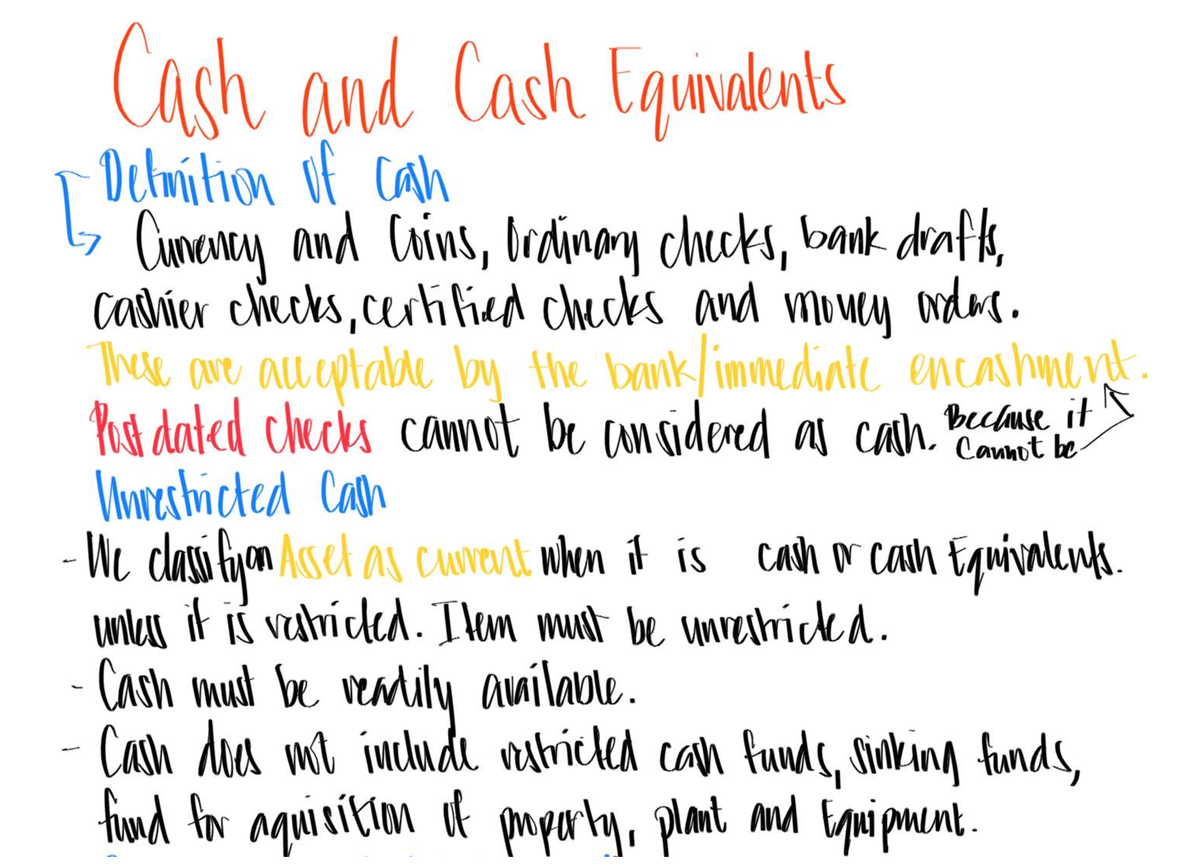 Cash and Cash Equivalents
Definition of Cash
Currency and Coins, Ordinary checks, bank drafts,
cashier checks, certified checks and money orders.
These are acceptable by the bank/immediate encashment.
Postdated checks cannot be considered as cash. Because it
Cannot be
Unrestricted Cash
- We classify an Asset as current when it is cash or cash Equivalents.
unless it is restricted. Item must be unrestricted.
- Cash must be readily available.
- Cash does not include restricted cash funds, sinking funds,
fund for aquisition of property, plant and Equipment.